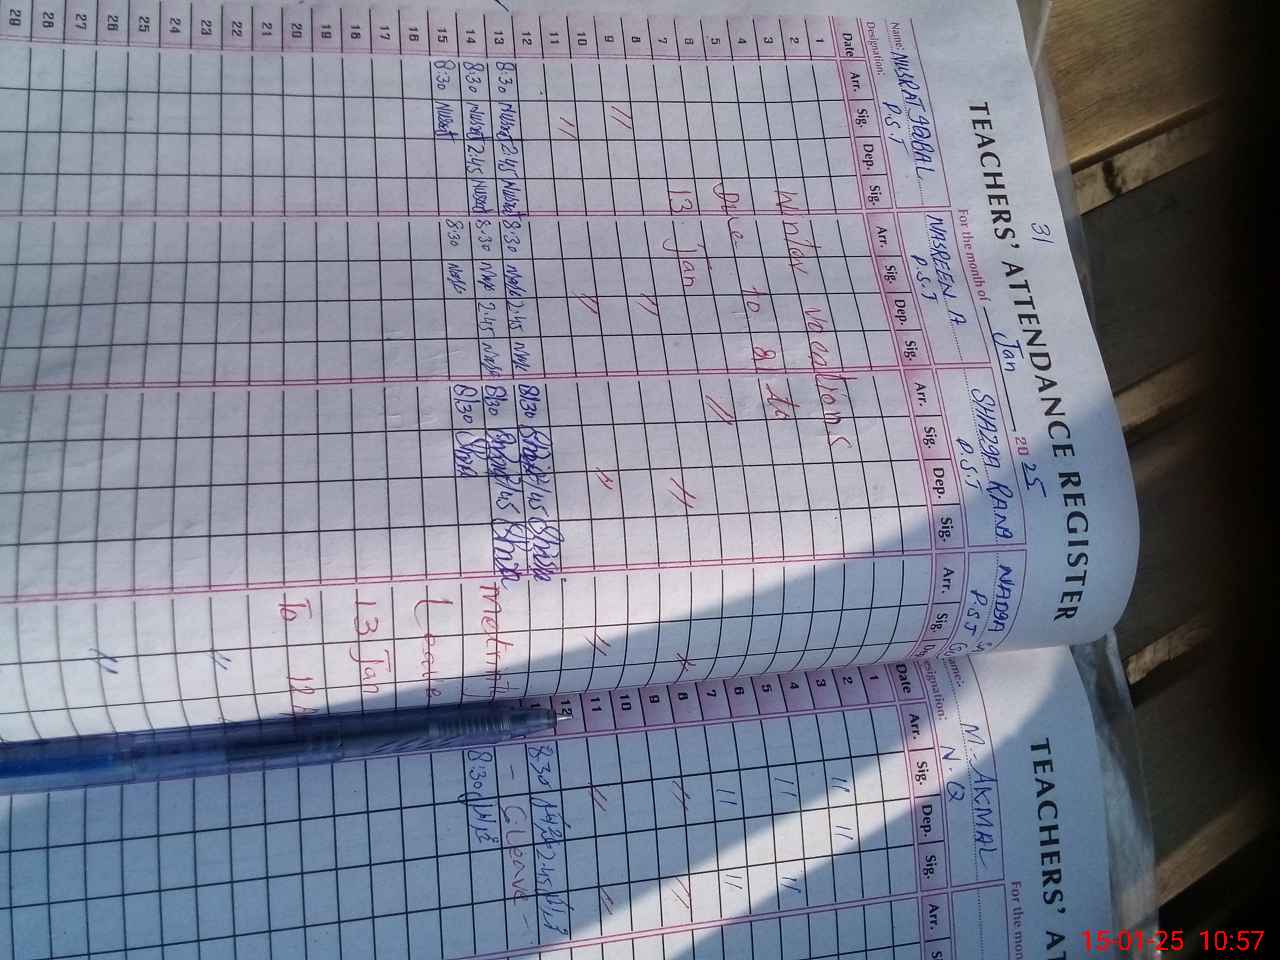 31
TEACHERS' ATTENDANCE REGISTER
For the month of Jan 2025
Name: NUSRAT IQBAL
Designation: P.S.T
NASREEN A
P.S.T
SHAZIA RANA
P.S.T
NADIA
P.S.T
Date Arr. Sig. Dep. Sig. Arr. Sig. Dep. Sig. Arr. Sig. Dep. Sig. Arr. Sig.
1
2
3
4
5
6
7
8
9
10
11
12
13
14
15
16
17
18
19
20
21
22
23
24
25
26
27
28
29
Winter vacations
Due to 81 to
13 Jan
8:30 Nusrat 2:45 Nusrat 8:30 2:45 8:30 2:45
8:30 Nusrat 2:45 Nusrat 8:30 2:45 8:30 2:45
8:30 Nusrat 8:30 8:30
Leave
13 Jan
To
TEACHERS' AT
For the mon
Name: M. AKMAL
Designation: N.Q
Date Arr. Sig. Dep. Sig. Arr.
1
2
3
4
5
6
7
8
9
10
11
12
8:30 2:45
- C Leave -
8:30
15-01-25 10:57